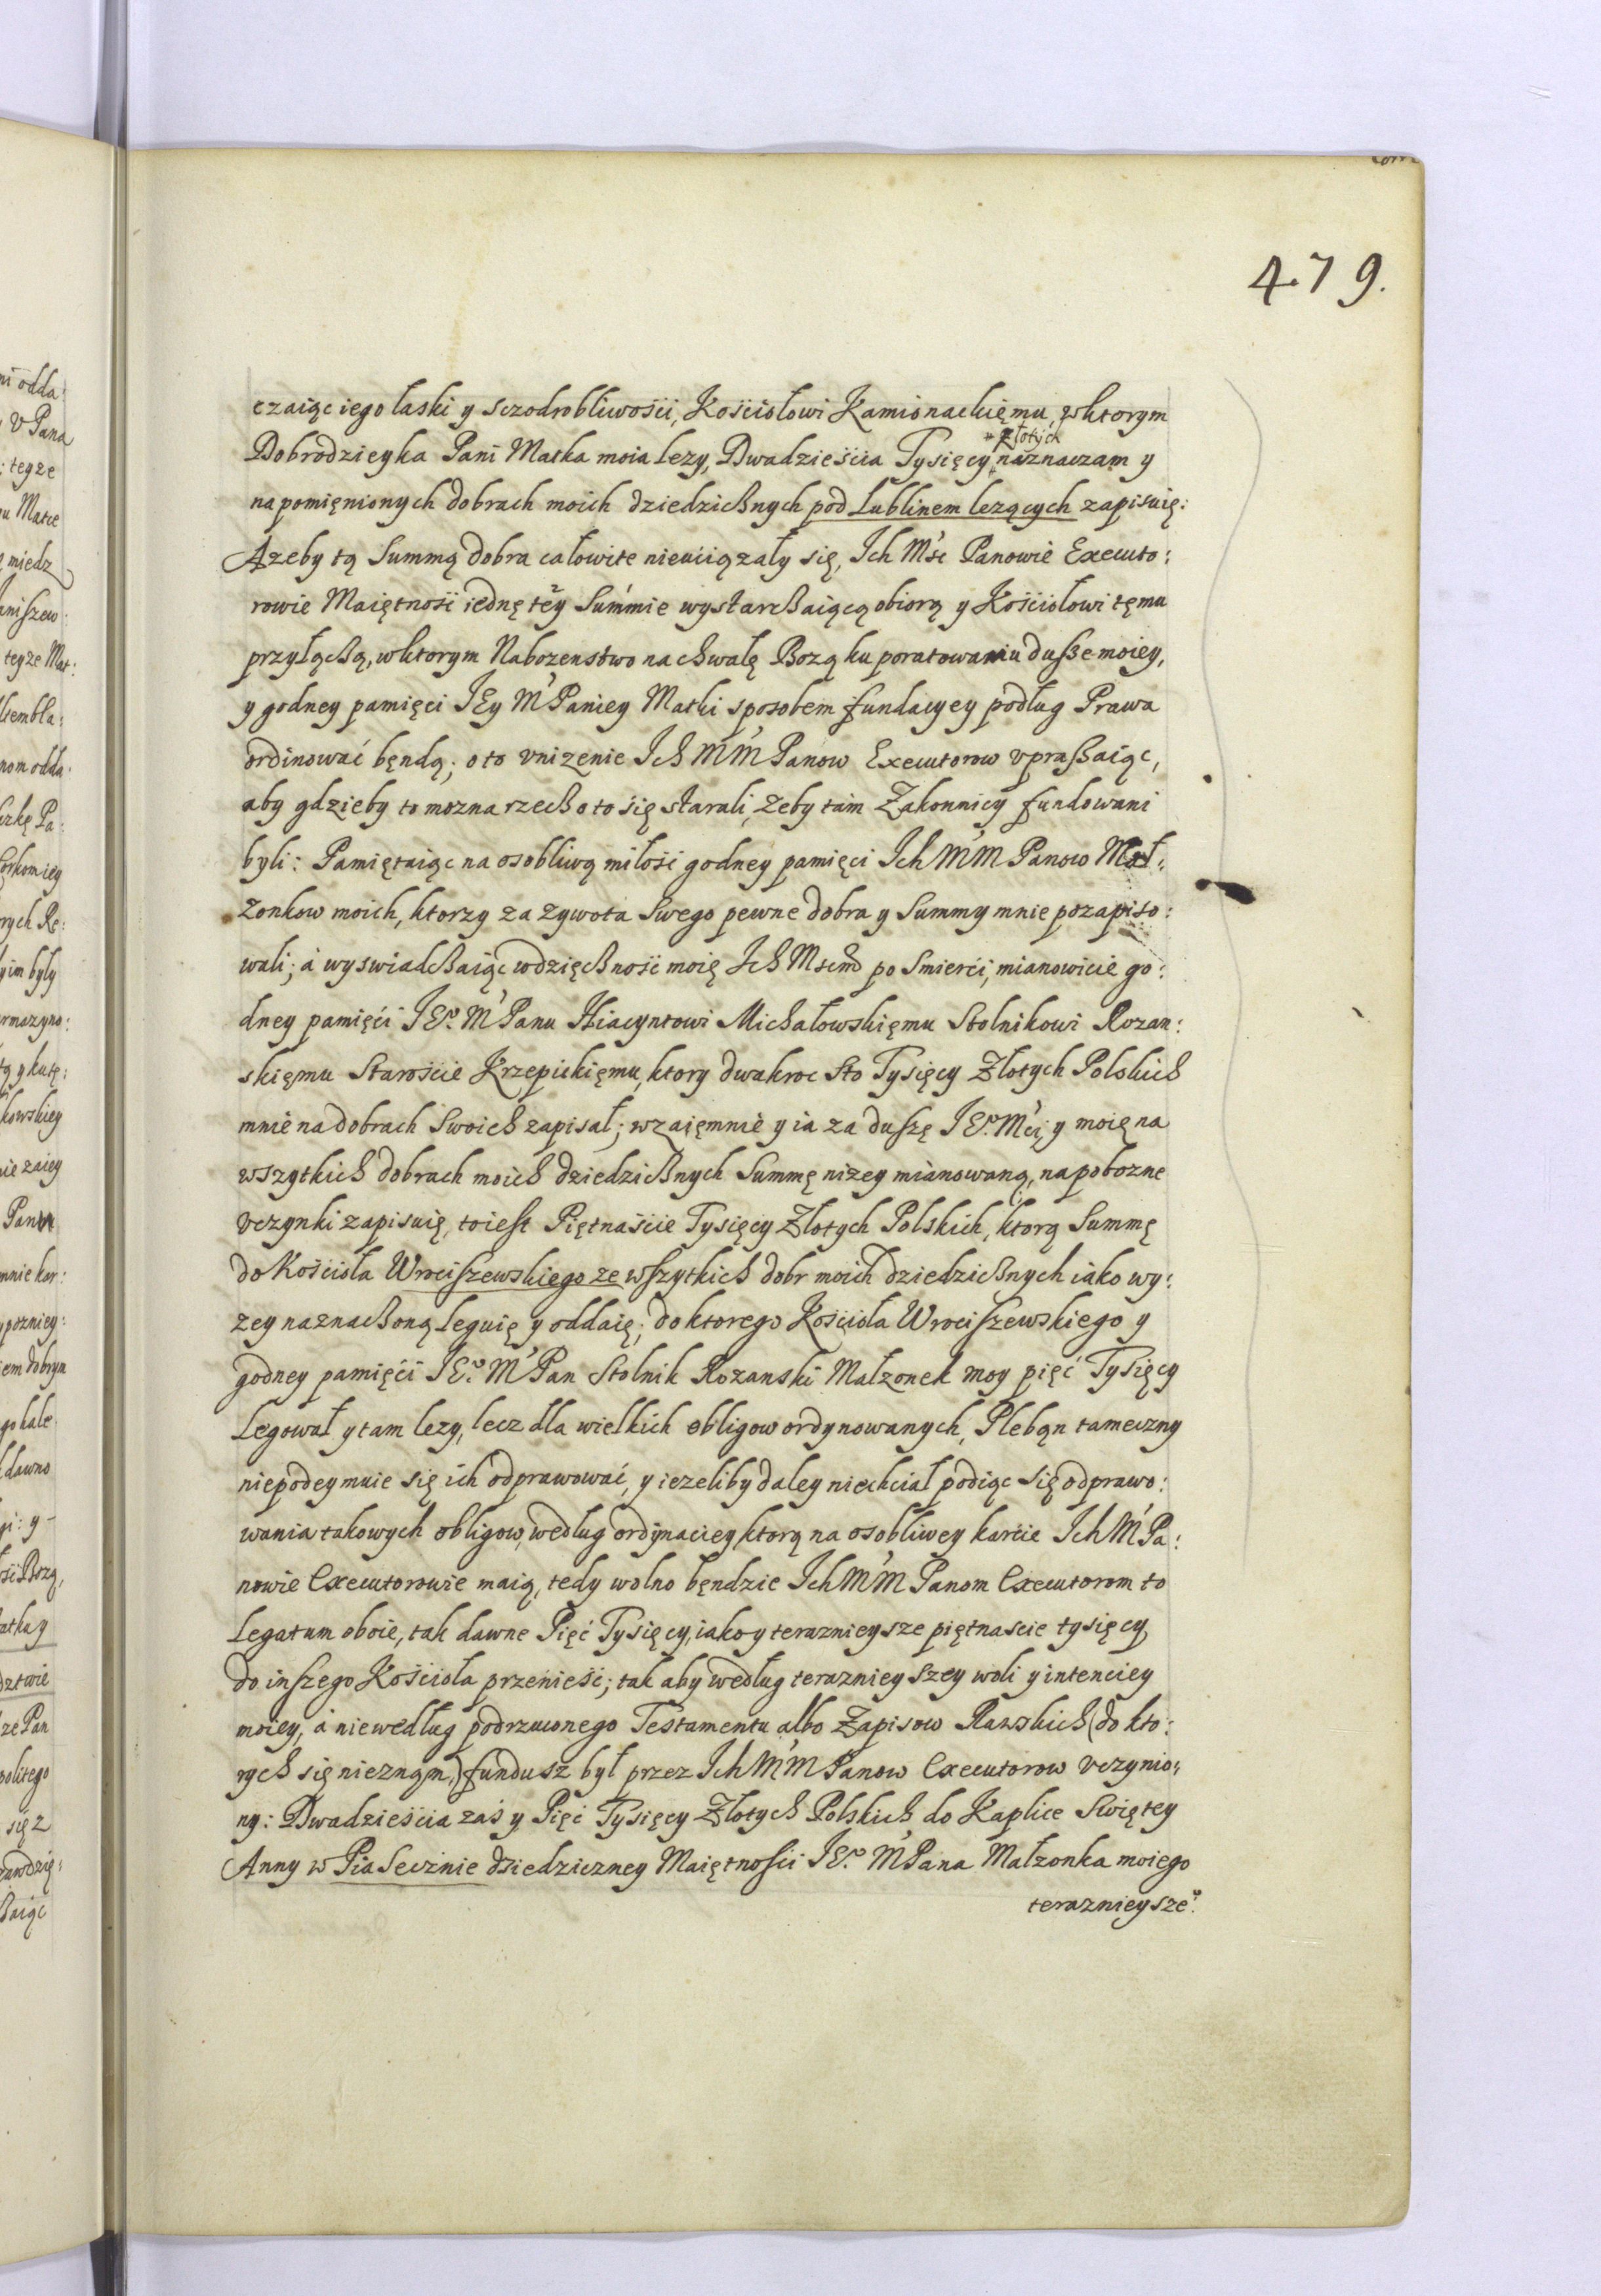 479.
czaiąc iego łaski y sczodrobliwości, Kościołowi Kamionackięmu, wktorym
złotych
Dobrodzieyka Pani Matka moia lezy, Dwadzieścia Tysięcy naznaczam y
na pomięnionych dobrach moich dziedzicznych pod Lublinem lezących zapisuię:
Azeby tą Summą dobra całowite nieuciązały się, Ich Mśc Panowie Executo:
rowie Maiętność iednę tey Summie wystarczaiącą obiorą y Kościołowi tęmu
przyłączą, wktorym Nabozenstwo na chwałę Bozą ku poratowaniu dusze moiey,
y godney pamięci IEy M Paniey Matki sposobem fundacyey podług Prawa
ordinować będą; o to vnizenie Ich MM Panow Executorow vpraszaiąc,
aby gdzieby to mozna rzecz o to się starali, zeby tam Zakonnicy fundowani
byli: Pamiętaiąc na osobliwą miłość godney pamięci Ich MM Panow Mał:
zonkow moich, ktorzy za zywota Swego pewne dobra y Summy mnie pozapiso:
wali; á wyswiadczaiąc wdzięczność moię Ich Mscm po Smierci, mianowicie go:
dney pamięci IEo. M Panu Hiacyntowi Michałowskięmu Stolnikowi Rozan:
skięmu Staroście Krzepickięmu, ktory dwakroc Sto Tysięcy Złotych Polskich
mnie na dobrach Swoich zapisał; wzaięmnie y ia za duszę IEo. Mci, y moię na
wszytkich dobrach moich dziedzicznych Summę nizey mianowaną, na pobozne
vczynki zapisuię, toiest Piętnaście Tysięcy Złotych Polskich, ktorą Summę
do Kościoła Wrociszewskiego ze wszytkich dobr moich dziedzicznych iako wy:
zey naznaczoną Leguię y oddaię; do ktorego Kościoła Wrociszewskiego y
godney pamięci IEo. M Pan Stolnik Rozanski Małzonek moy pięć Tysięcy
Legował y tam lezy, lecz dla wielkich obligow ordynowanych, Pleban tameczny
niepodeymuie się ich odprawować, y iezeliby daley niechciał podiąc się odprawo:
wania takowych obligow, według ordynaciey ktorą na osobliwey karcie Ich M Pa:
nowie Executorowie maią, tedy wolno będzie Ich MM Panom Executorom to
Legatum oboie, tak dawne Pięć Tysięcy, iako y teraznieysze piętnascie tysięcy,
do inszego Kościoła przenieść; tak aby według teraznieyszey woli y intenciey
moiey, á niewedług podrzuconego Testamentu albo Zapisow Rawskich (do kto:
rych się nieznąm,) fundusz był przez Ich MM Panow Executorow vczynio:
ny: Dwadzieścia zaś y Pięć Tysięcy Złotych Polskich do Kaplice Swiętey
Anny w Piasecznie dziedziczney Maiętnosci IEo. M Pana Małzonka moiego
teraznieyszeo.